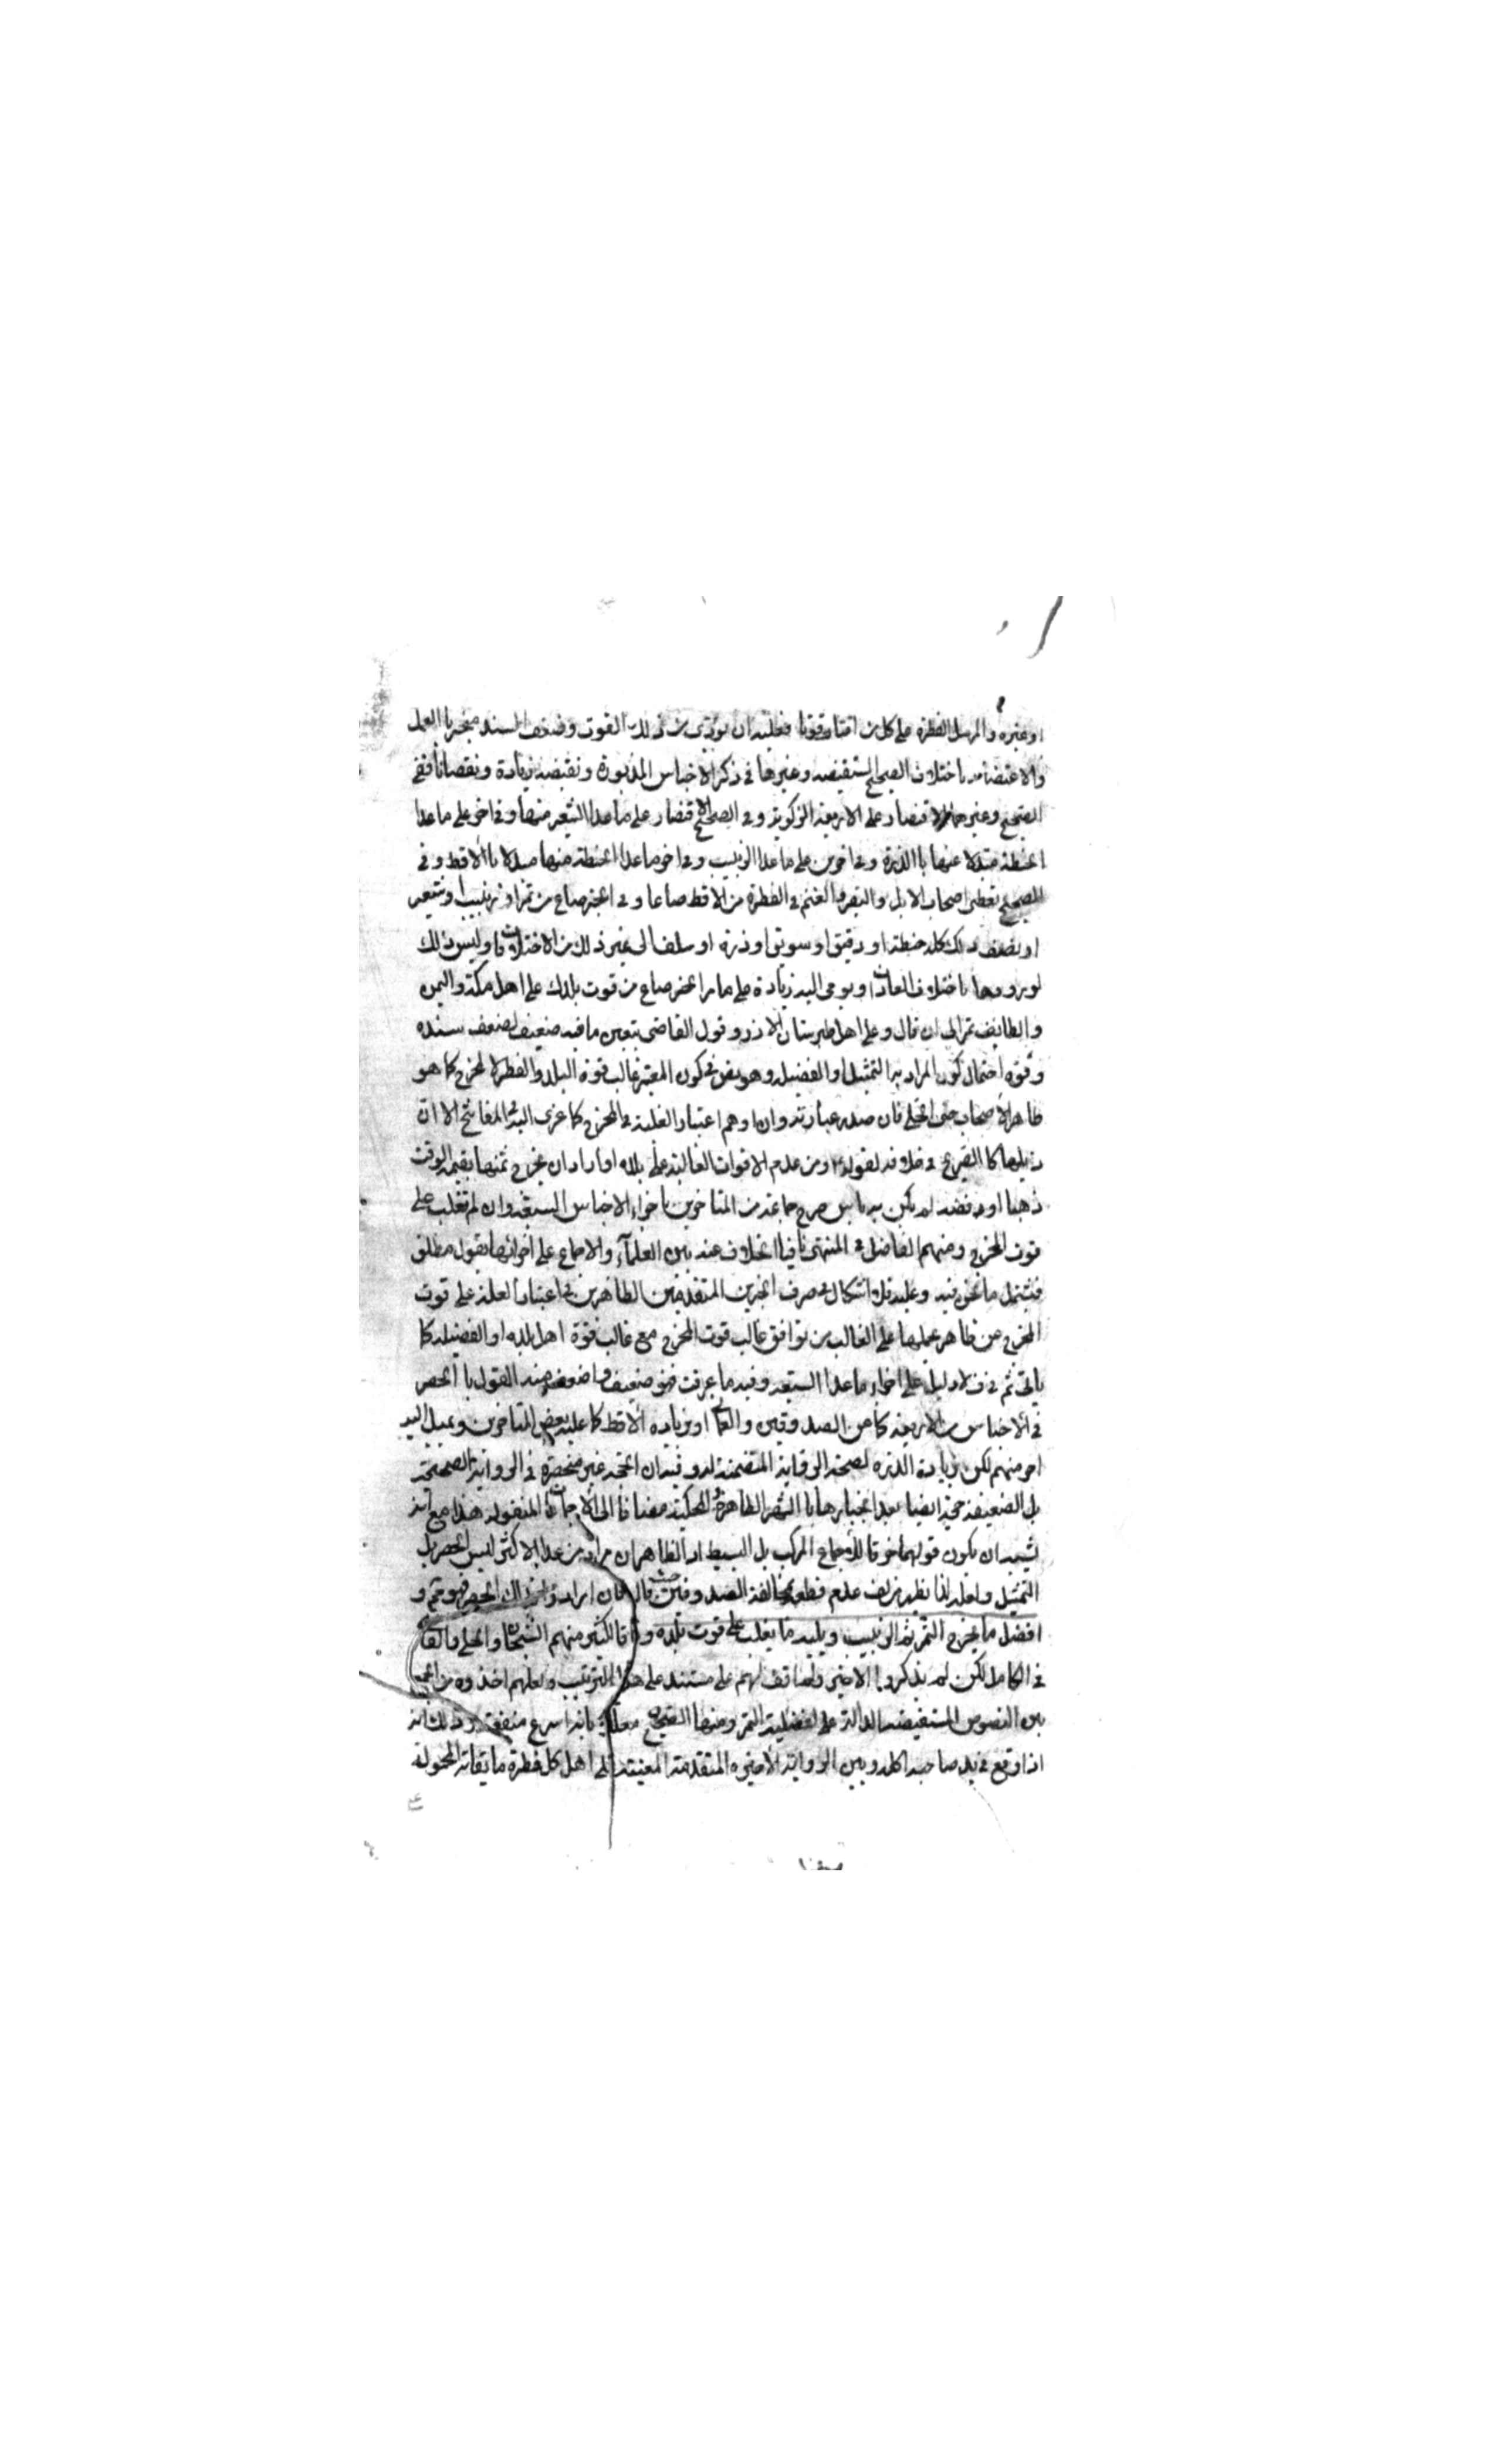 او غيره والمرسل الفطرة على كل من اقتات قوتا فعليه ان يؤدي من ذلك القوت وضعف السند منجبر بالعمل
والاعتضاد باختلاف الصحيح المستفيضة وغيرها في ذكر الاجناس المذبورة ونقيضه زيادة ونقصانا ففي
الصحيح وغيره الاقتصار على الاربعة الزكوية وفي الصحيح الاقتصار على ما عدا الشعير منها وفي اخر على ما عدا
الحنطة مبدلا عنها بالذرة وفي اخرين على ما عدا الزبيب وفي اخر ما عدا الحنطة منها مبدلا بالاقط وفي
الصحيح يعطى اصحاب الابل والبقر والغنم في الفطرة من الاقط صاعا وفي الخبر صاع من تمر او زبيب او شعير
او نصف ذلك كله حنطة او دقيق او سويق او ذرة او سلت الى غير ذلك من الاختلافات وليس ذلك
لورودها باختلاف العادات ويومى اليه زيادة على ما مر الخبر صاع من قوت بلدك على اهل مكة واليمن
والطايف تمر الى ان قال وعلى اهل طبرستان الارز وقول القاضى بتعين ما فيه ضعيف لضعف سنده
وقوة احتمال كون المراد به التمثيل او الفضيلة وهو في كون المعتبر غالب قوت البلد والفطر لا المخرج كما هو
ظاهر الاصحاب حتى الحلي فان صدر عبارته وان اوهم اعتبار الغلبة في المخرج كما عزى اليه في المفاتيح الا ان
ذيلها كا الصريح في خلافه لقوله ومن عدم الاقوات الغالبة على بلده او اراد ان يخرج ثمنها بقيمة الوقت
ذهبا او فضة لم يكن به باس صرح جماعة من المتاخرين باجزاء الاجناس السبعة وان لم تغلب على
قوت المخرج ومنهم الفاضل في المنتهى نافيا الخلاف عنه بين العلماء والاجماع على اجزائها بقول مطلق
فيشمل ما نحن فيه وعليه فلا اشكال في صرف الخبرين المتقدمين الظاهرين في اعتبار الغلبة على قوت
المخرج عن ظاهرهما بحملها على الغالب من توافق غالب قوت المخرج مع غالب قوة اهل بلده او الفضيلة كما
ياتي ثم في ف لا دليل على اجزاء ما عدا السبعة وفيه ما عرفت فهو ضعيف واضعف منه القول با الحصر
في الاجناس الاربعة كما عن الصدوقين والعماني او بزيادة الاقط كما عليه بعض المتاخرين ويميل اليه
اخر منهم لكن بزيادة الذرة لصحة الرواية المتضمنة له وفيه ان الحجة غير منحصرة في الرواية الصحيحة
بل الضعيفة حجة ايضا بعد انجبارها با الشهرة الظاهرة والمحكية مضافا الى الاجماعات المنقولة هذا مع انه
يشبه ان يكون قولهما خرقا للاجماع المركب بل البسيط اذ الظاهر ان مراد من عدا الاكثر ليس الحصر بل
التمثيل ولعله لذا يظهر من لف عدم قطعه بمخالفة الصدوقين حيث قال فان اراد بذلك الحصر فهو مم و
افضل ما يخرج التمر ثم الزبيب ويليه ما يغلب على قوت بلده وفاقا لكثير منهم الشيخان والحلي والقاضى
في الكامل لكن لم يذكروا الاخير ولم اقف لهم على مستند على هذا الترتيب ولعلهم اخذوه من الجمع
بين النصوص المستفيضة الدالة على افضلية التمر ومنها الصحيح معللا بانه اسرع منفعة وذلك انه
اذا وقع في يد صاحبه اكله وبين الرواية الاخيرة المتقدمة المعينة على اهل كل فطرة ما يقاته المحمولة